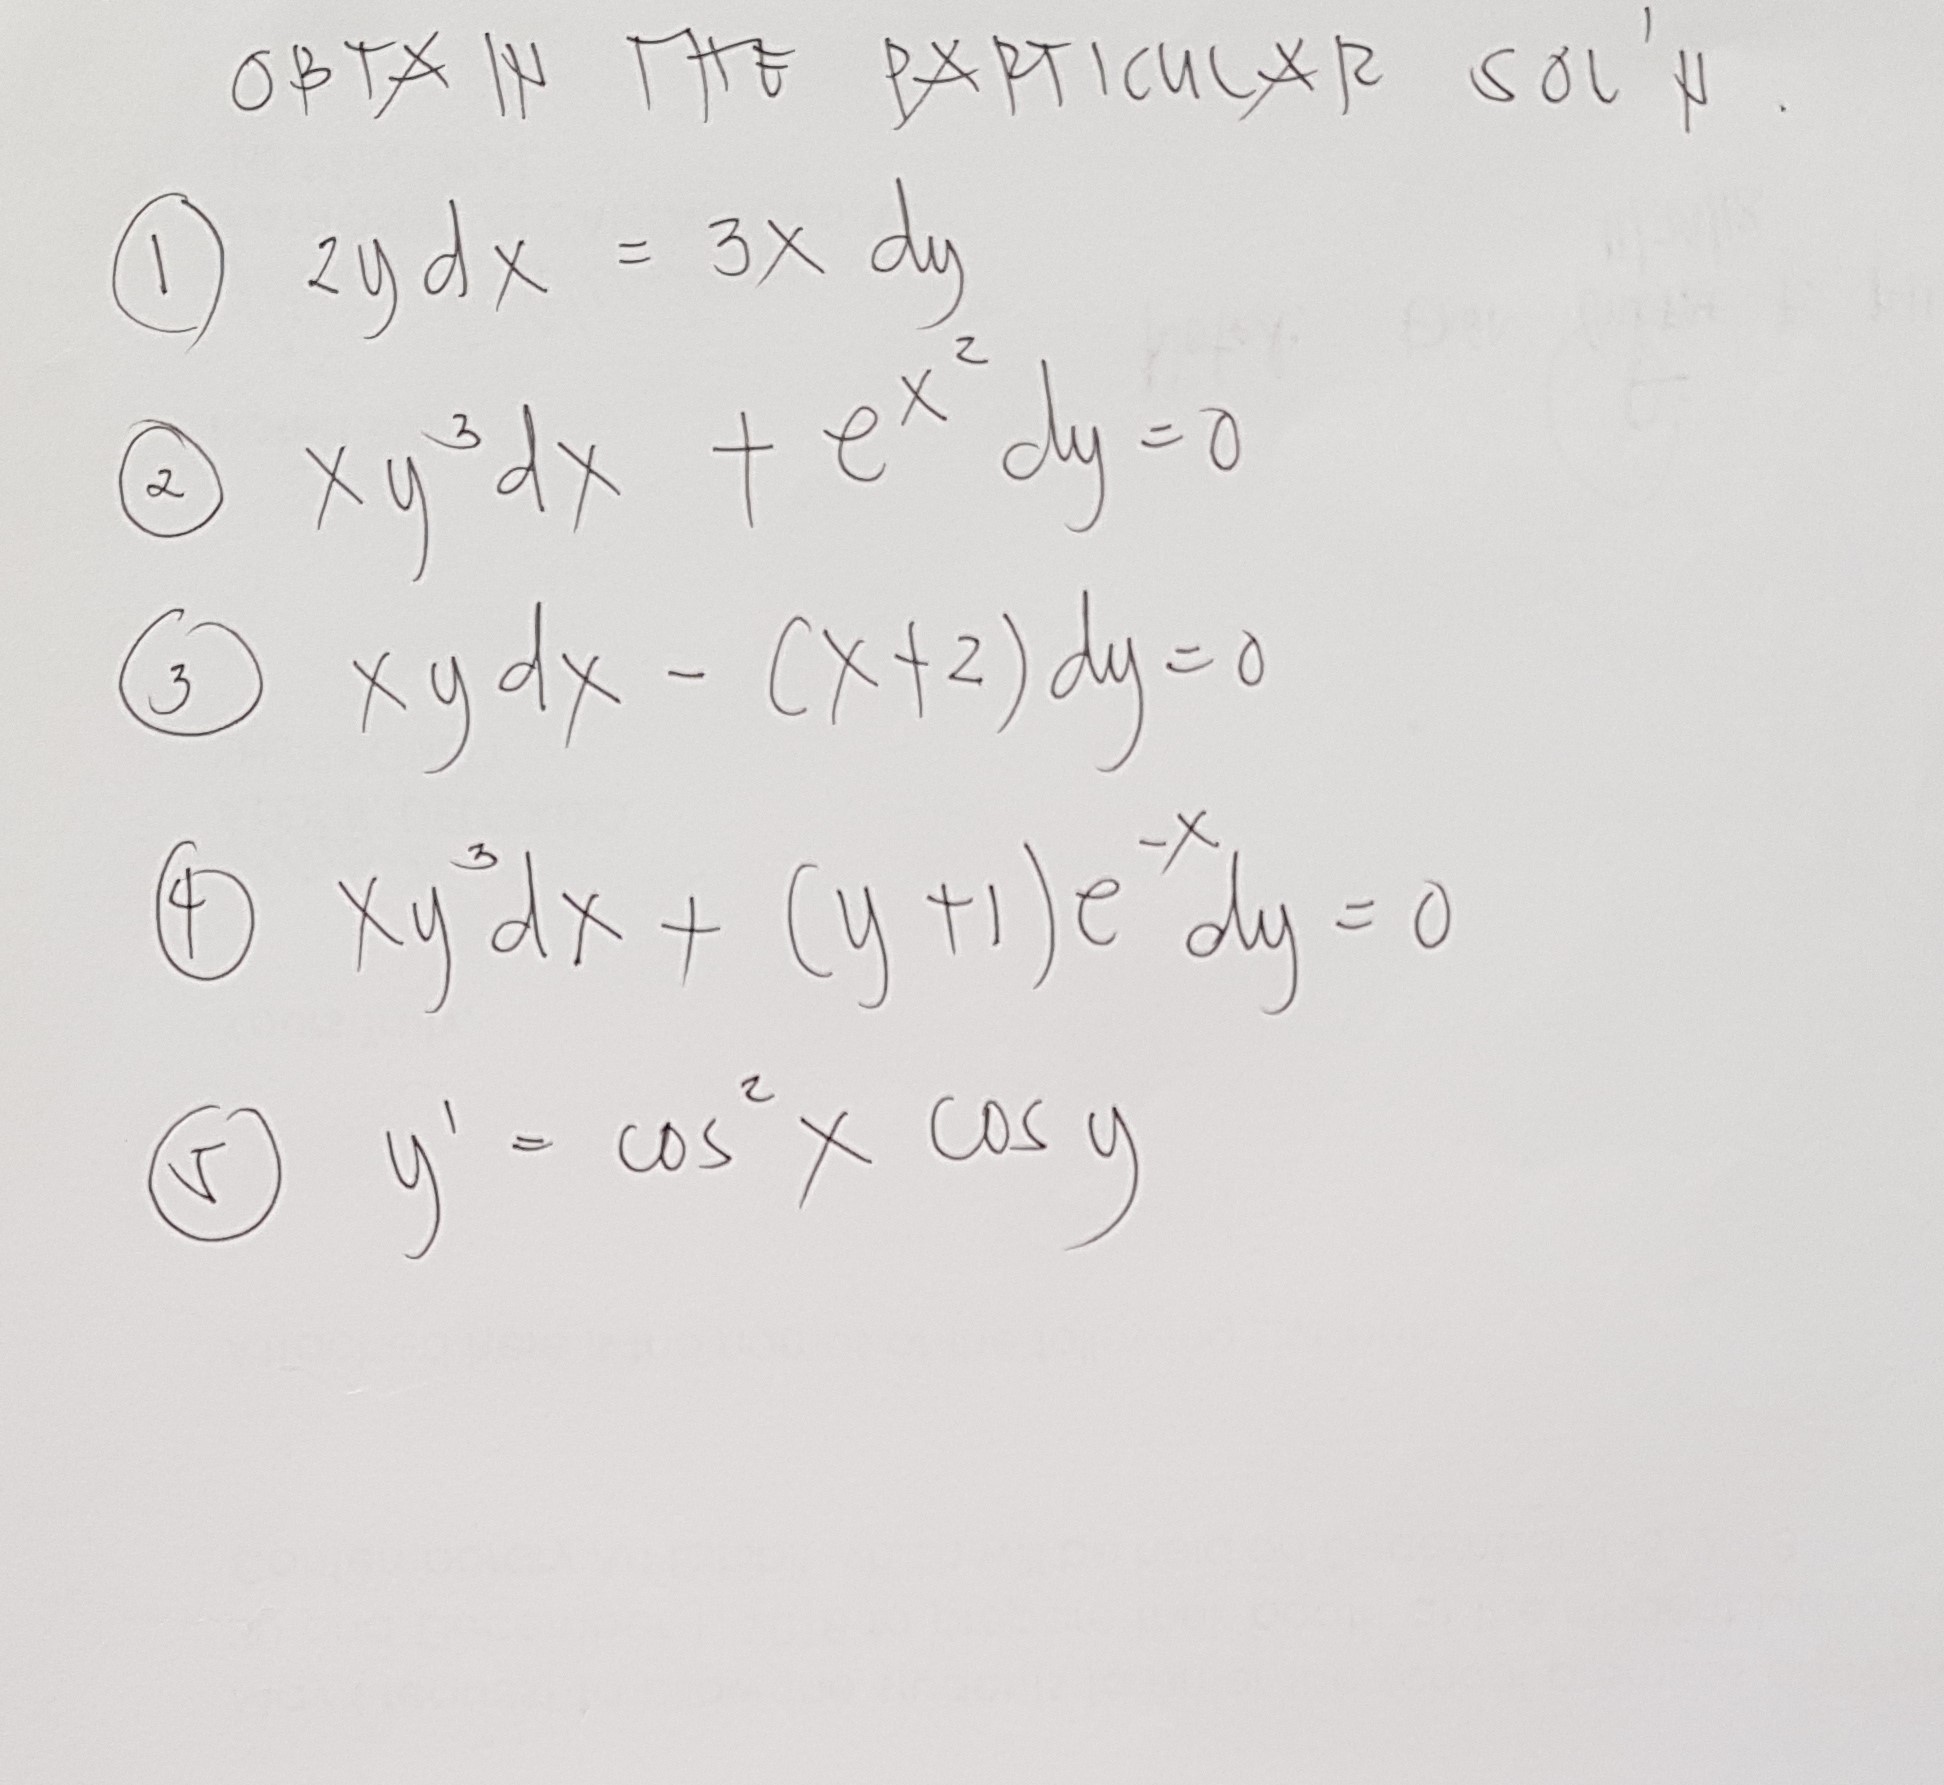 OBTAIN THE PARTICULAR SOL'N.
① 2y dx = 3x dy
② xy³dx + e^x² dy = 0
③ xy dx - (x+2) dy = 0
④ xy³dx + (y+1)e^-x dy = 0
⑤ y' = cos²x cos y